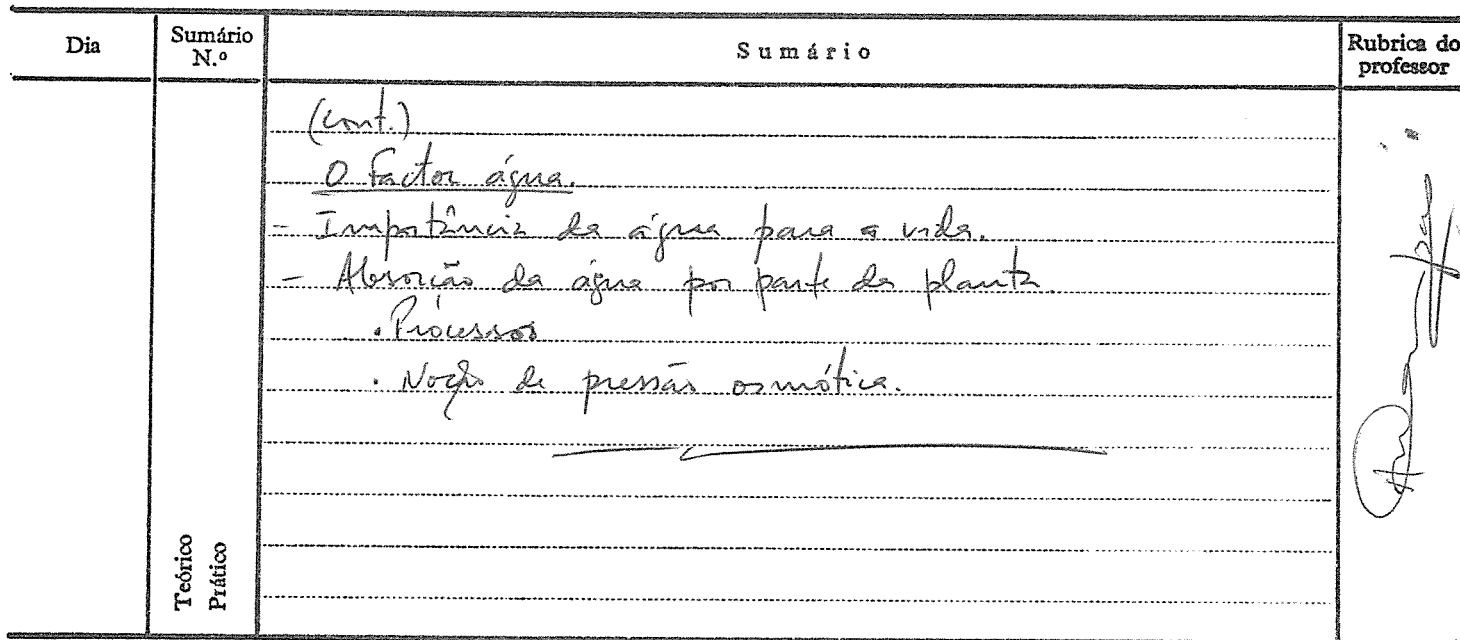 Dia
Sumário N.º
Sumário
Rubrica do professor
(cont.)
O Factor água.
- Importância da água para a vida.
- Absorção da água por parte da planta.
. Processos
. Noção de pressão osmótica.
Teórico
Prático